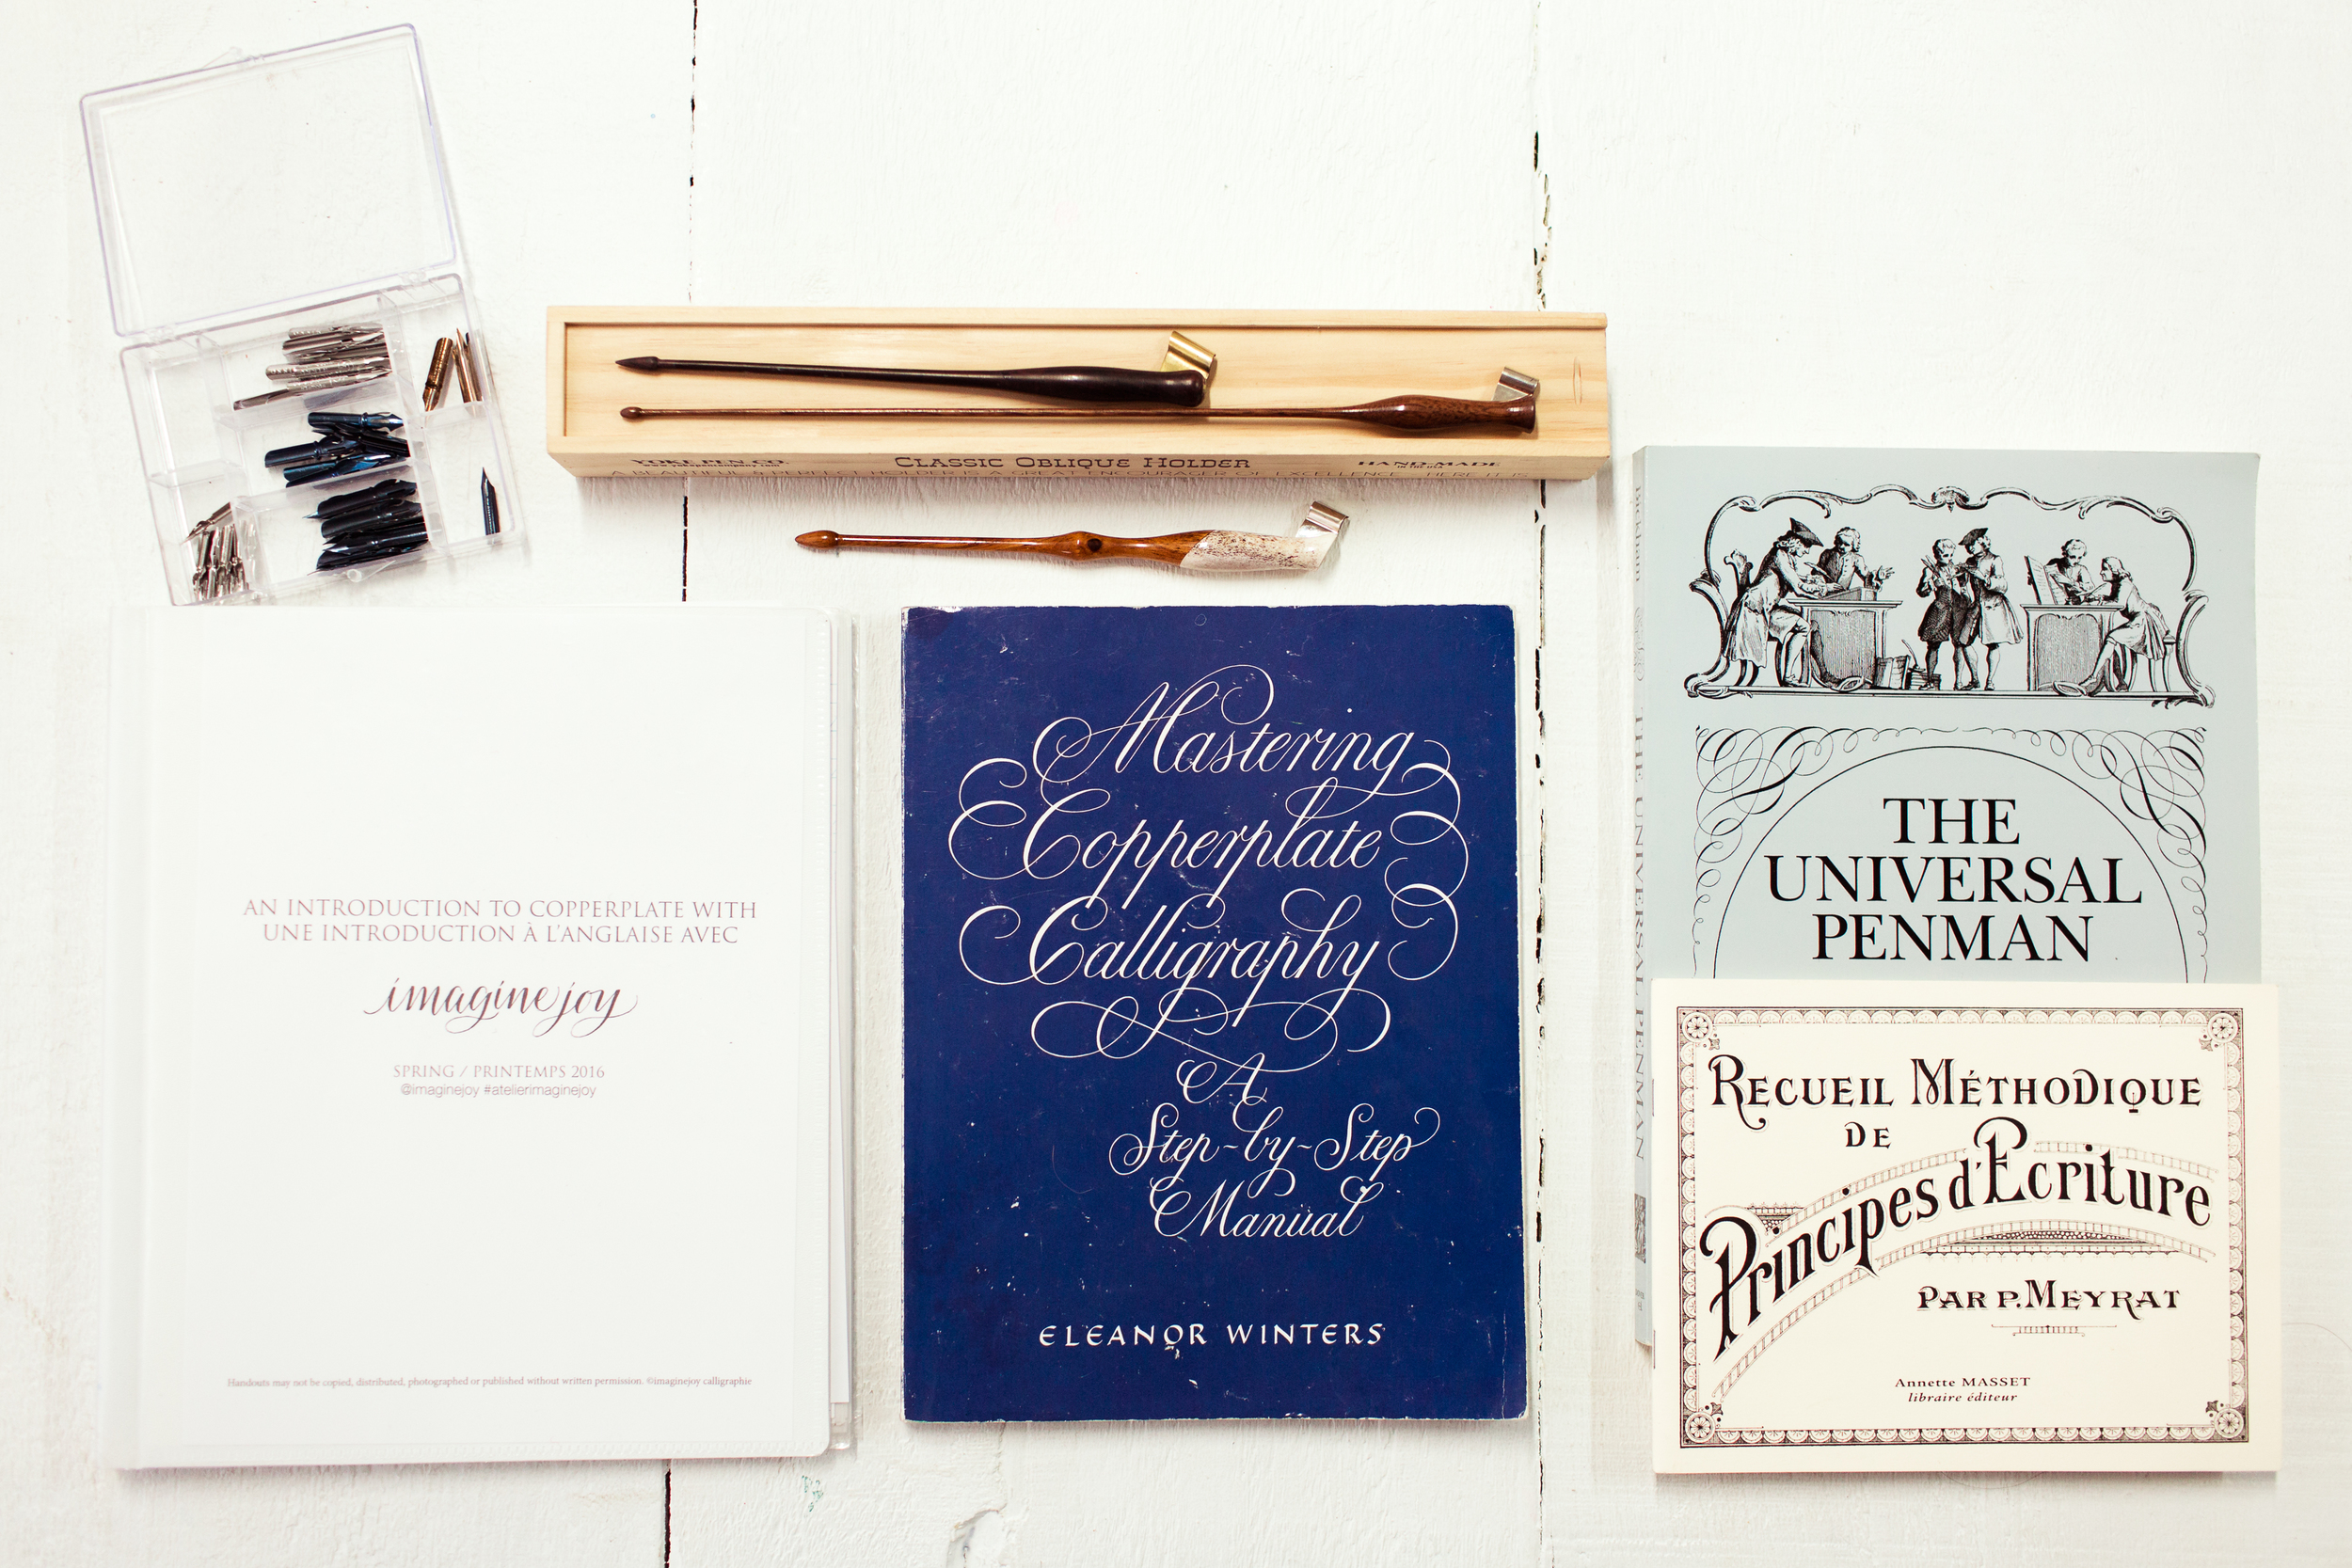 YOKE PEN CO.
www.yokepencompany.com
CLASSIC OBLIQUE HOLDER
HAND MADE
IN THE USA
A BEAUTIFUL & PERFECT HOLDER IS A GREAT ENCOURAGER OF EXCELLENCE - HERE IT IS
AN INTRODUCTION TO COPPERPLATE WITH
UNE INTRODUCTION À L'ANGLAISE AVEC
imagine joy
SPRING / PRINTEMPS 2016
@imaginejoy #atelierimaginejoy
Handouts may not be copied, distributed, photographed or published without written permission. ©imaginejoy calligraphie
Mastering
Copperplate
Calligraphy
A
Step-by-Step
Manual
ELEANOR WINTERS
Bickham
THE UNIVERSAL PENMAN
THE
UNIVERSAL
PENMAN
RECUEIL MÉTHODIQUE
DE
Principes d'Ecriture
PAR P. MEYRAT
Annette MASSET
libraire éditeur